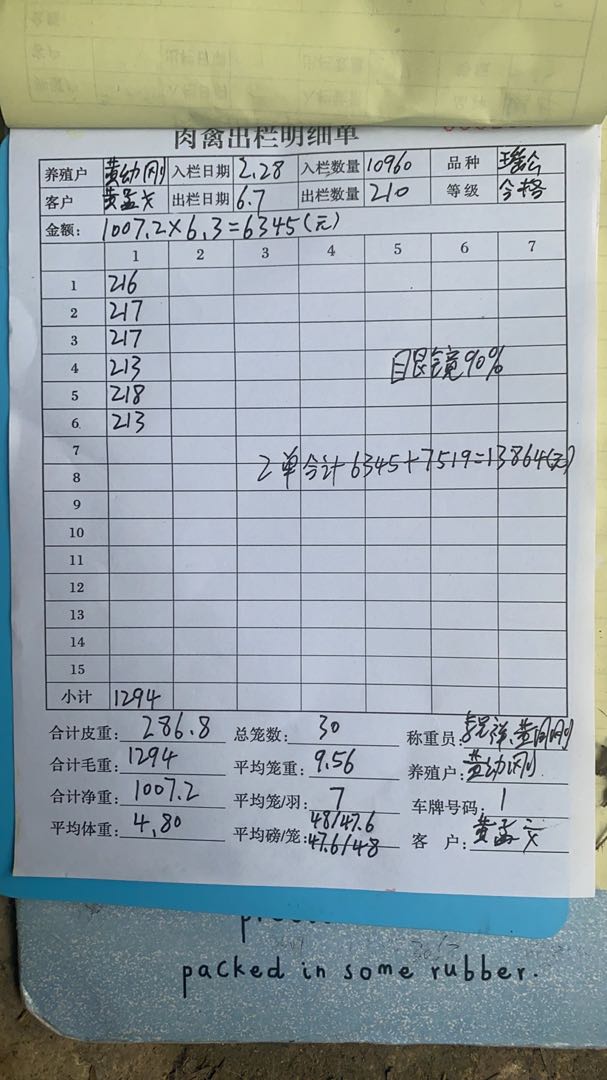 肉禽出栏明细单
养殖户 黄幼刚 入栏日期 2.28 入栏数量 10960 品种
客户 黄孟 出栏日期 6.7 出栏数量 210 等级 合格
金额: 1007.2×6.3=6345(元)
1 2 3 4 5 6 7
1 216
2 217
3 217
4 213
目艮镜90%
5 218
6 213
7
2单合计6345+7519=13864(元)
8
9
10
11
12
13
14
15
小计 1294
合计皮重: 286.8 总笼数: 30 称重员:
合计毛重: 1294 平均笼重: 9.56 养殖户: 黄幼刚
合计净重: 1007.2 平均笼/羽: 7 车牌号码: 1
平均体重: 4.80 平均磅/笼: 48/47.6 客 户: 黄孟
47.6/48
packed in some rubber.